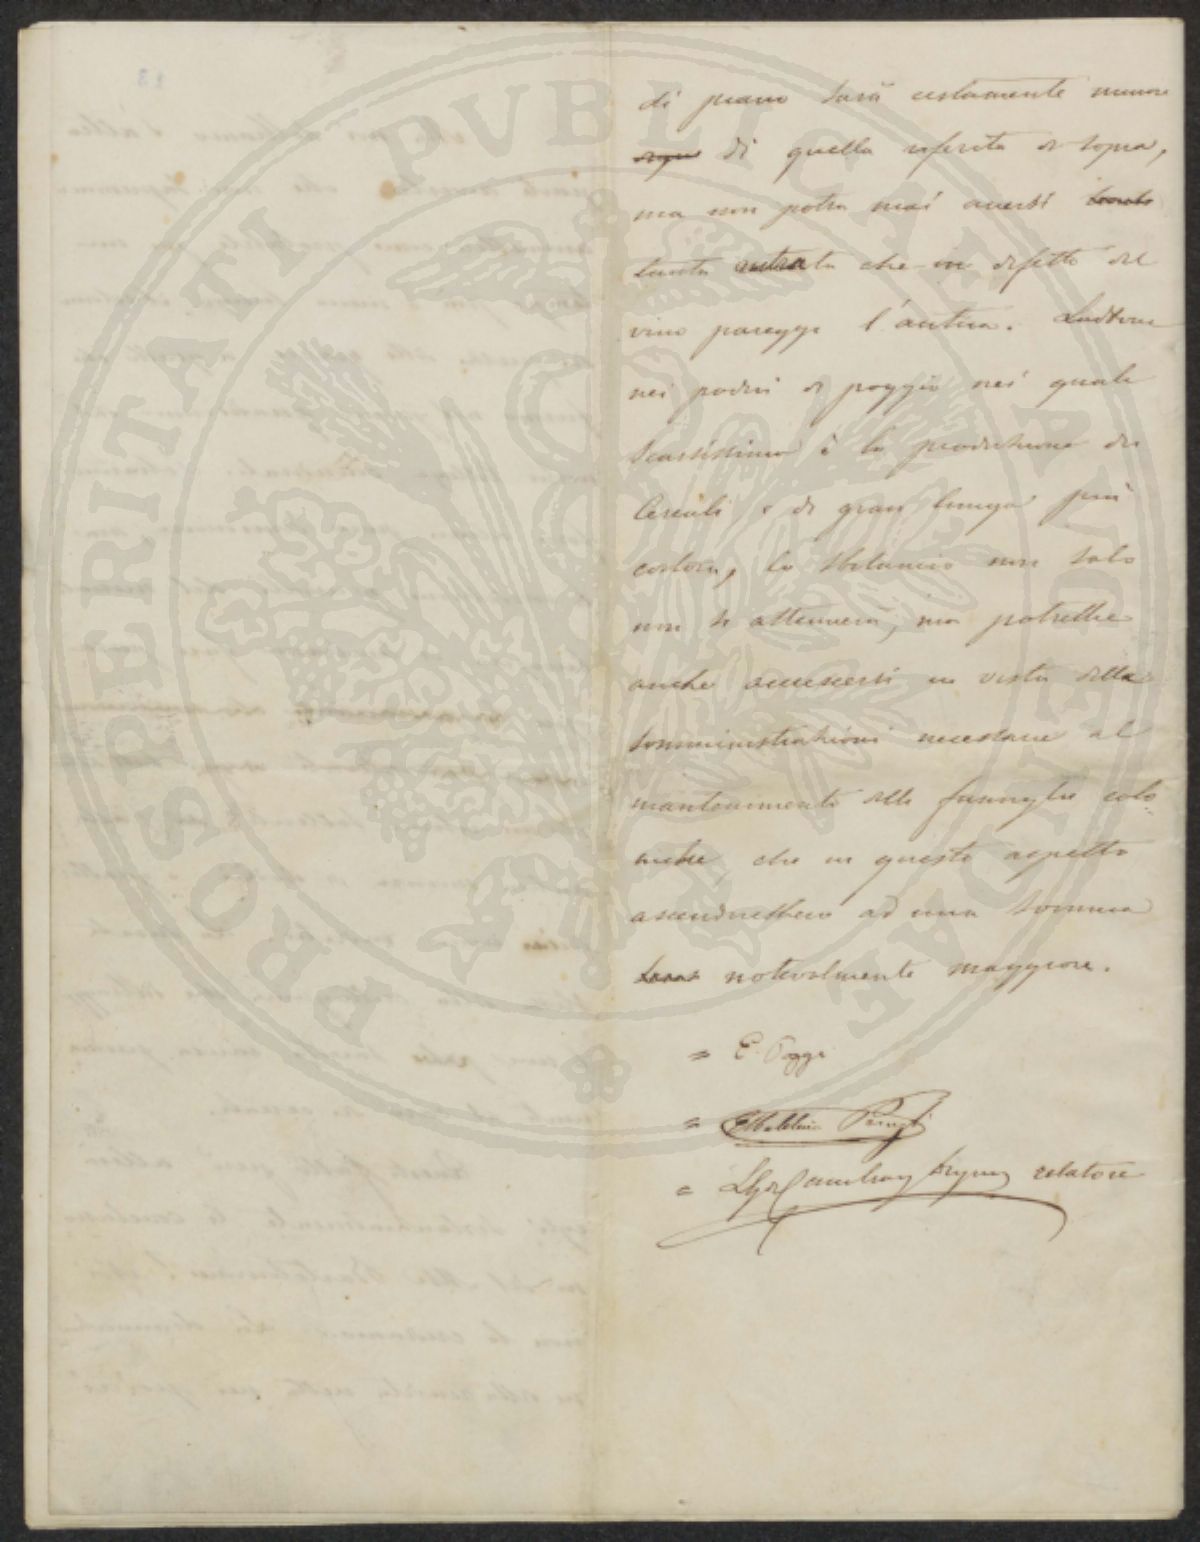 di piano sarà certamente minore
di quella riferita di sopra,
ma non potrà mai aversi tanto
tanta entrata che in difetto del
vino pareggi l'antica. Laddove
nei poderi di poggio nei quali
scarsissima è la produzione dei
Cereali e di gran lunga più
costosa, lo sbilancio non solo
non si attenuerà, ma potrebbe
anche accrescersi in vista delle
somministrazioni necessarie al
mantenimento delle famiglie colo
niche, che in questo aspetto
ascenderebbero ad una somma
notevolmente maggiore.
= E. Poggi
=
= L. G. de Cambray Digny relatore
PROSPERITATI PUBLICAE AUGENDAE